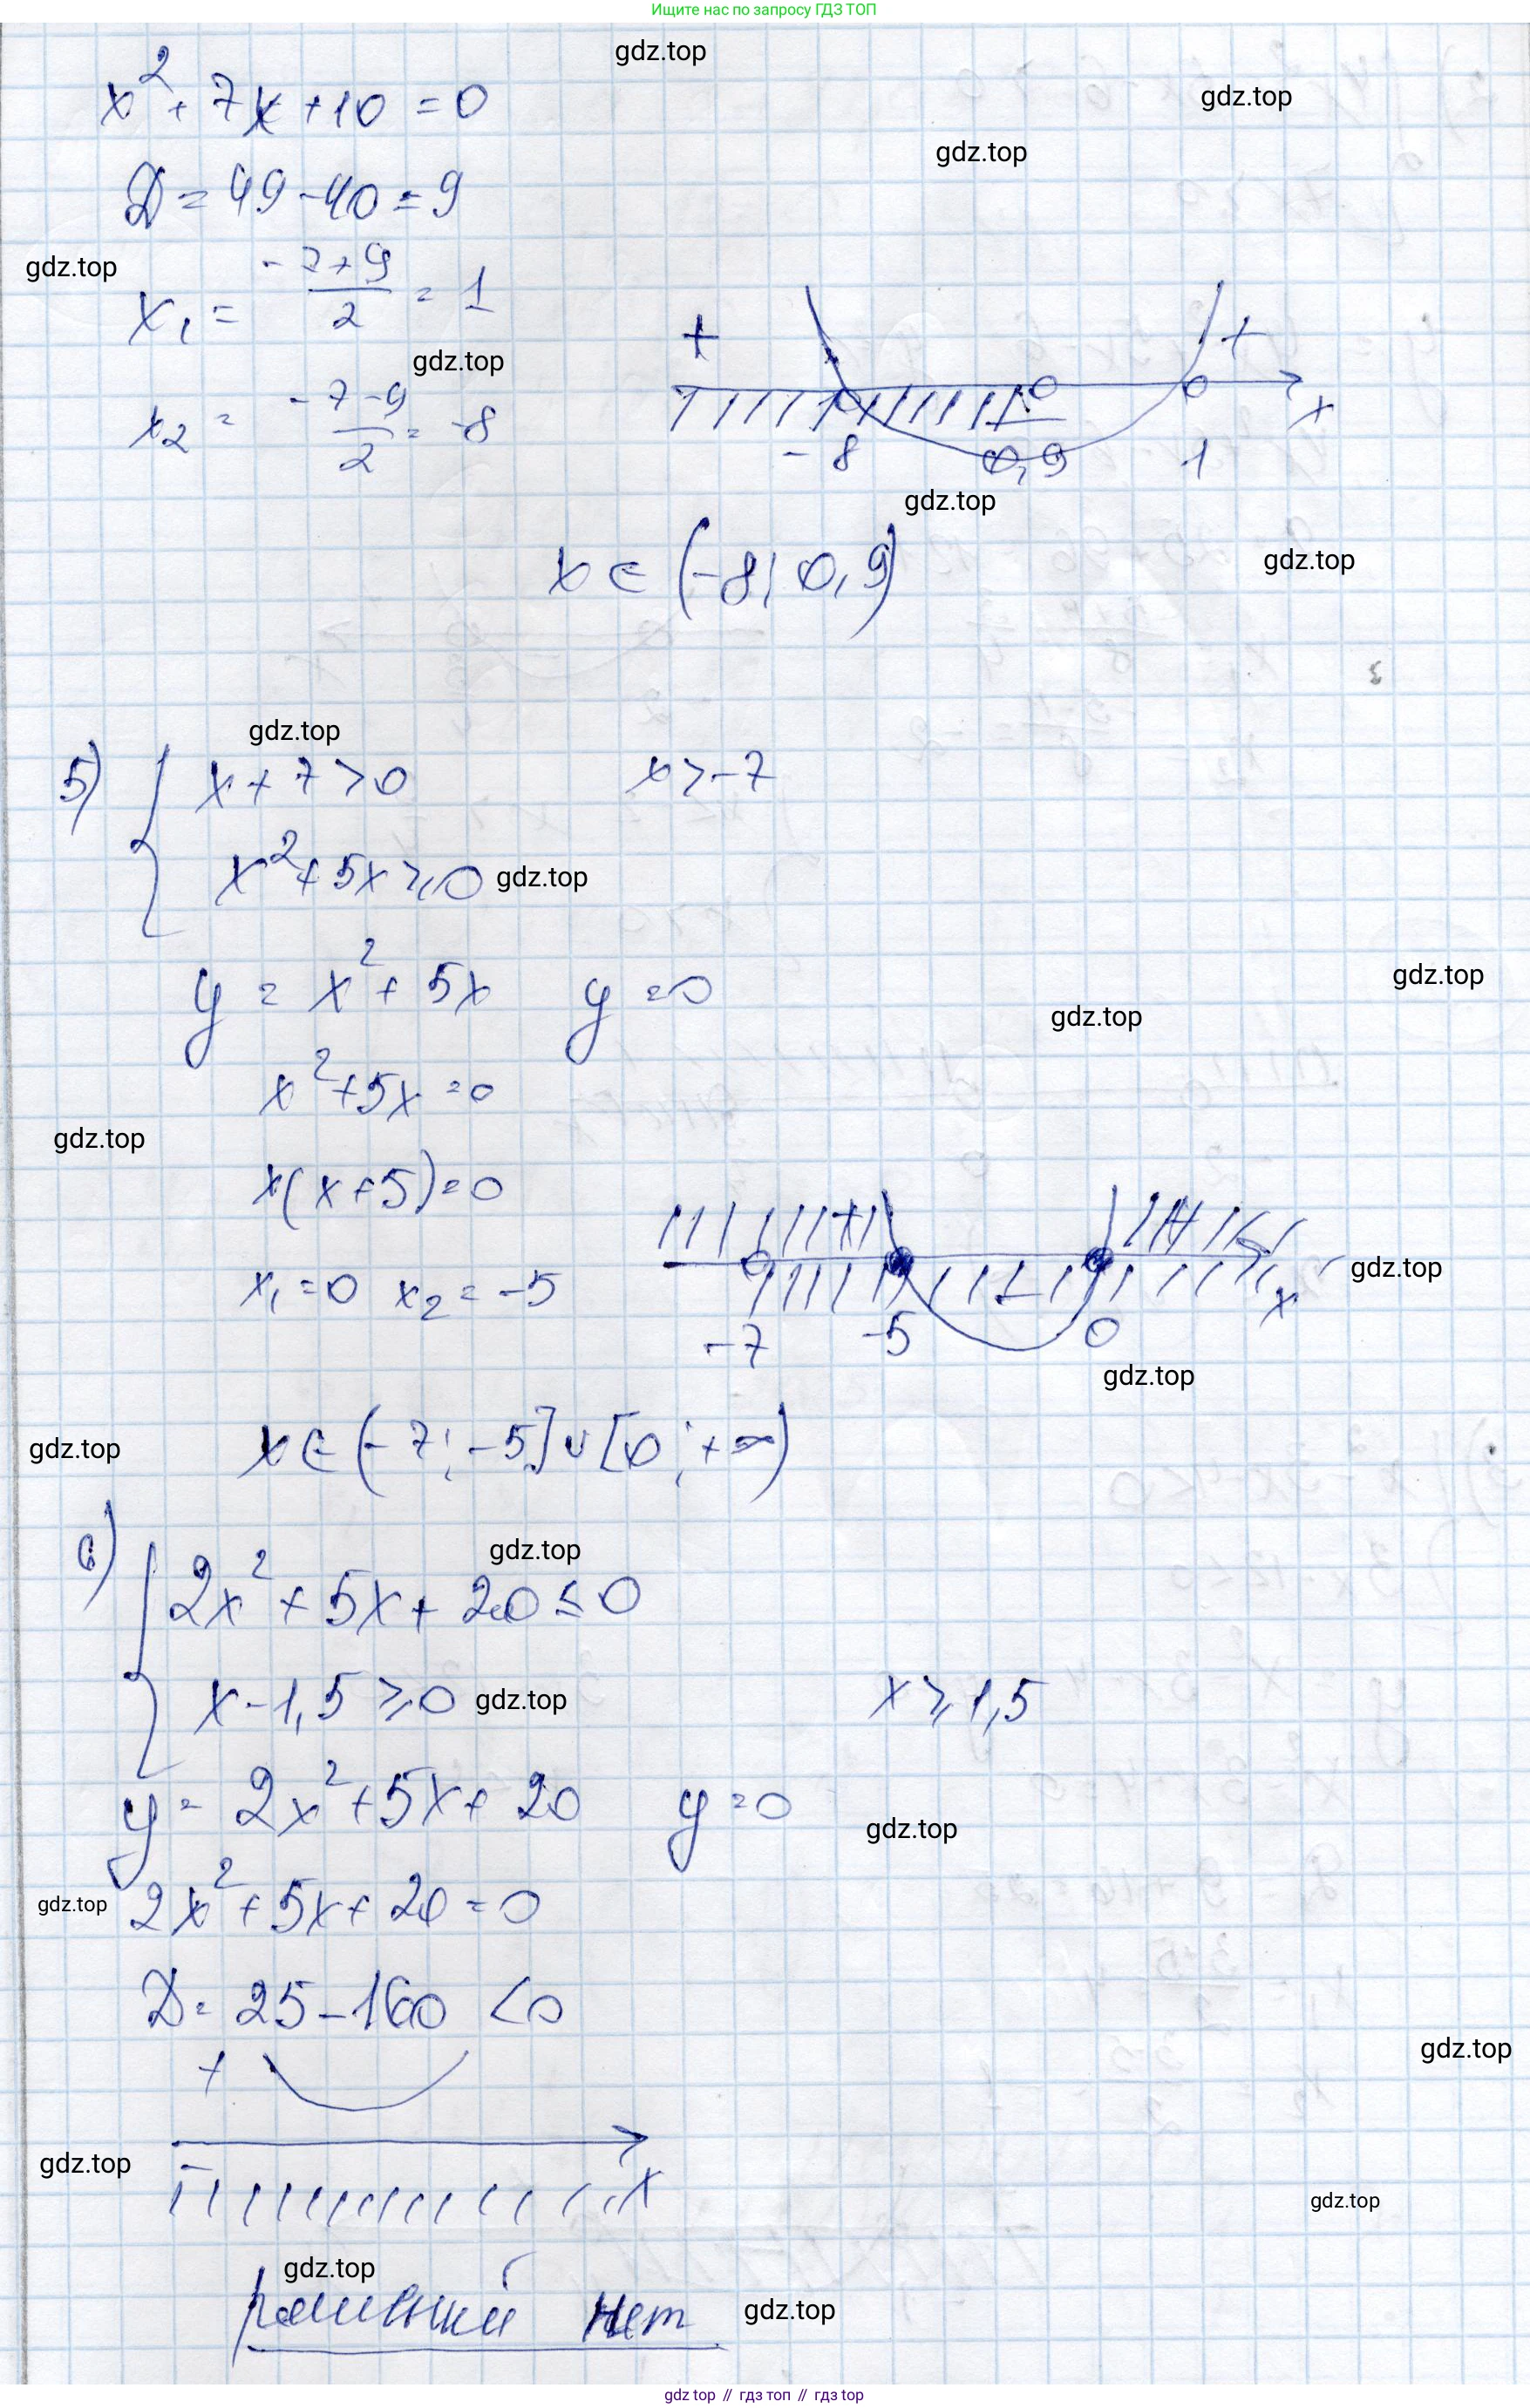 Ищите нас по запросу ГДЗ ТОП
gdz.top
x² + 7x + 10 = 0
gdz.top
gdz.top
D = 49 - 40 = 9
gdz.top
x₁ = (-7+9)/2 = 1
gdz.top
+ +
x₂ = (-7-9)/2 = -8
x
-8 0,9 1
gdz.top
x ∈ (-8; 0,9)
gdz.top
gdz.top
5) { x + 7 > 0 x > -7
x² + 5x ≥ 0 gdz.top
y = x² + 5x y = 0
gdz.top
gdz.top
x² + 5x = 0
gdz.top
x(x+5) = 0
+ +
x₁ = 0 x₂ = -5
- x
gdz.top
-7 -5 0
gdz.top
x ∈ (-7; -5] ∪ [0; +∞)
gdz.top
gdz.top
6) { 2x² + 5x + 20 ≤ 0
x - 1,5 ≥ 0 gdz.top x ≥ 1,5
y = 2x² + 5x + 20 y = 0
gdz.top
gdz.top 2x² + 5x + 20 = 0
D = 25 - 160 < 0
gdz.top
+
gdz.top
- x
gdz.top
gdz.top
решений нет gdz.top
gdz top // гдз топ // гдз top